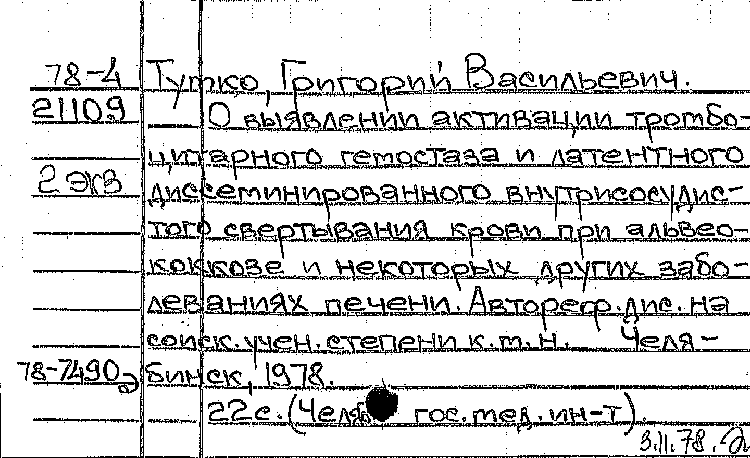 78-4 Тутко, Григорий Васильевич.
21109 О выявлении активации тромбо-
цитарного гемостаза и латентного
2 экз диссеминированного внутрисосудис-
того свертывания крови при альвео-
коккозе и некоторых других забо-
леваниях печени. Автореф. дис. на
соиск. учен. степени к. м. н. Челя-
78-7490 бинск, 1978.
22 с. (Челяб гос. мед. ин-т).
3.11.78.